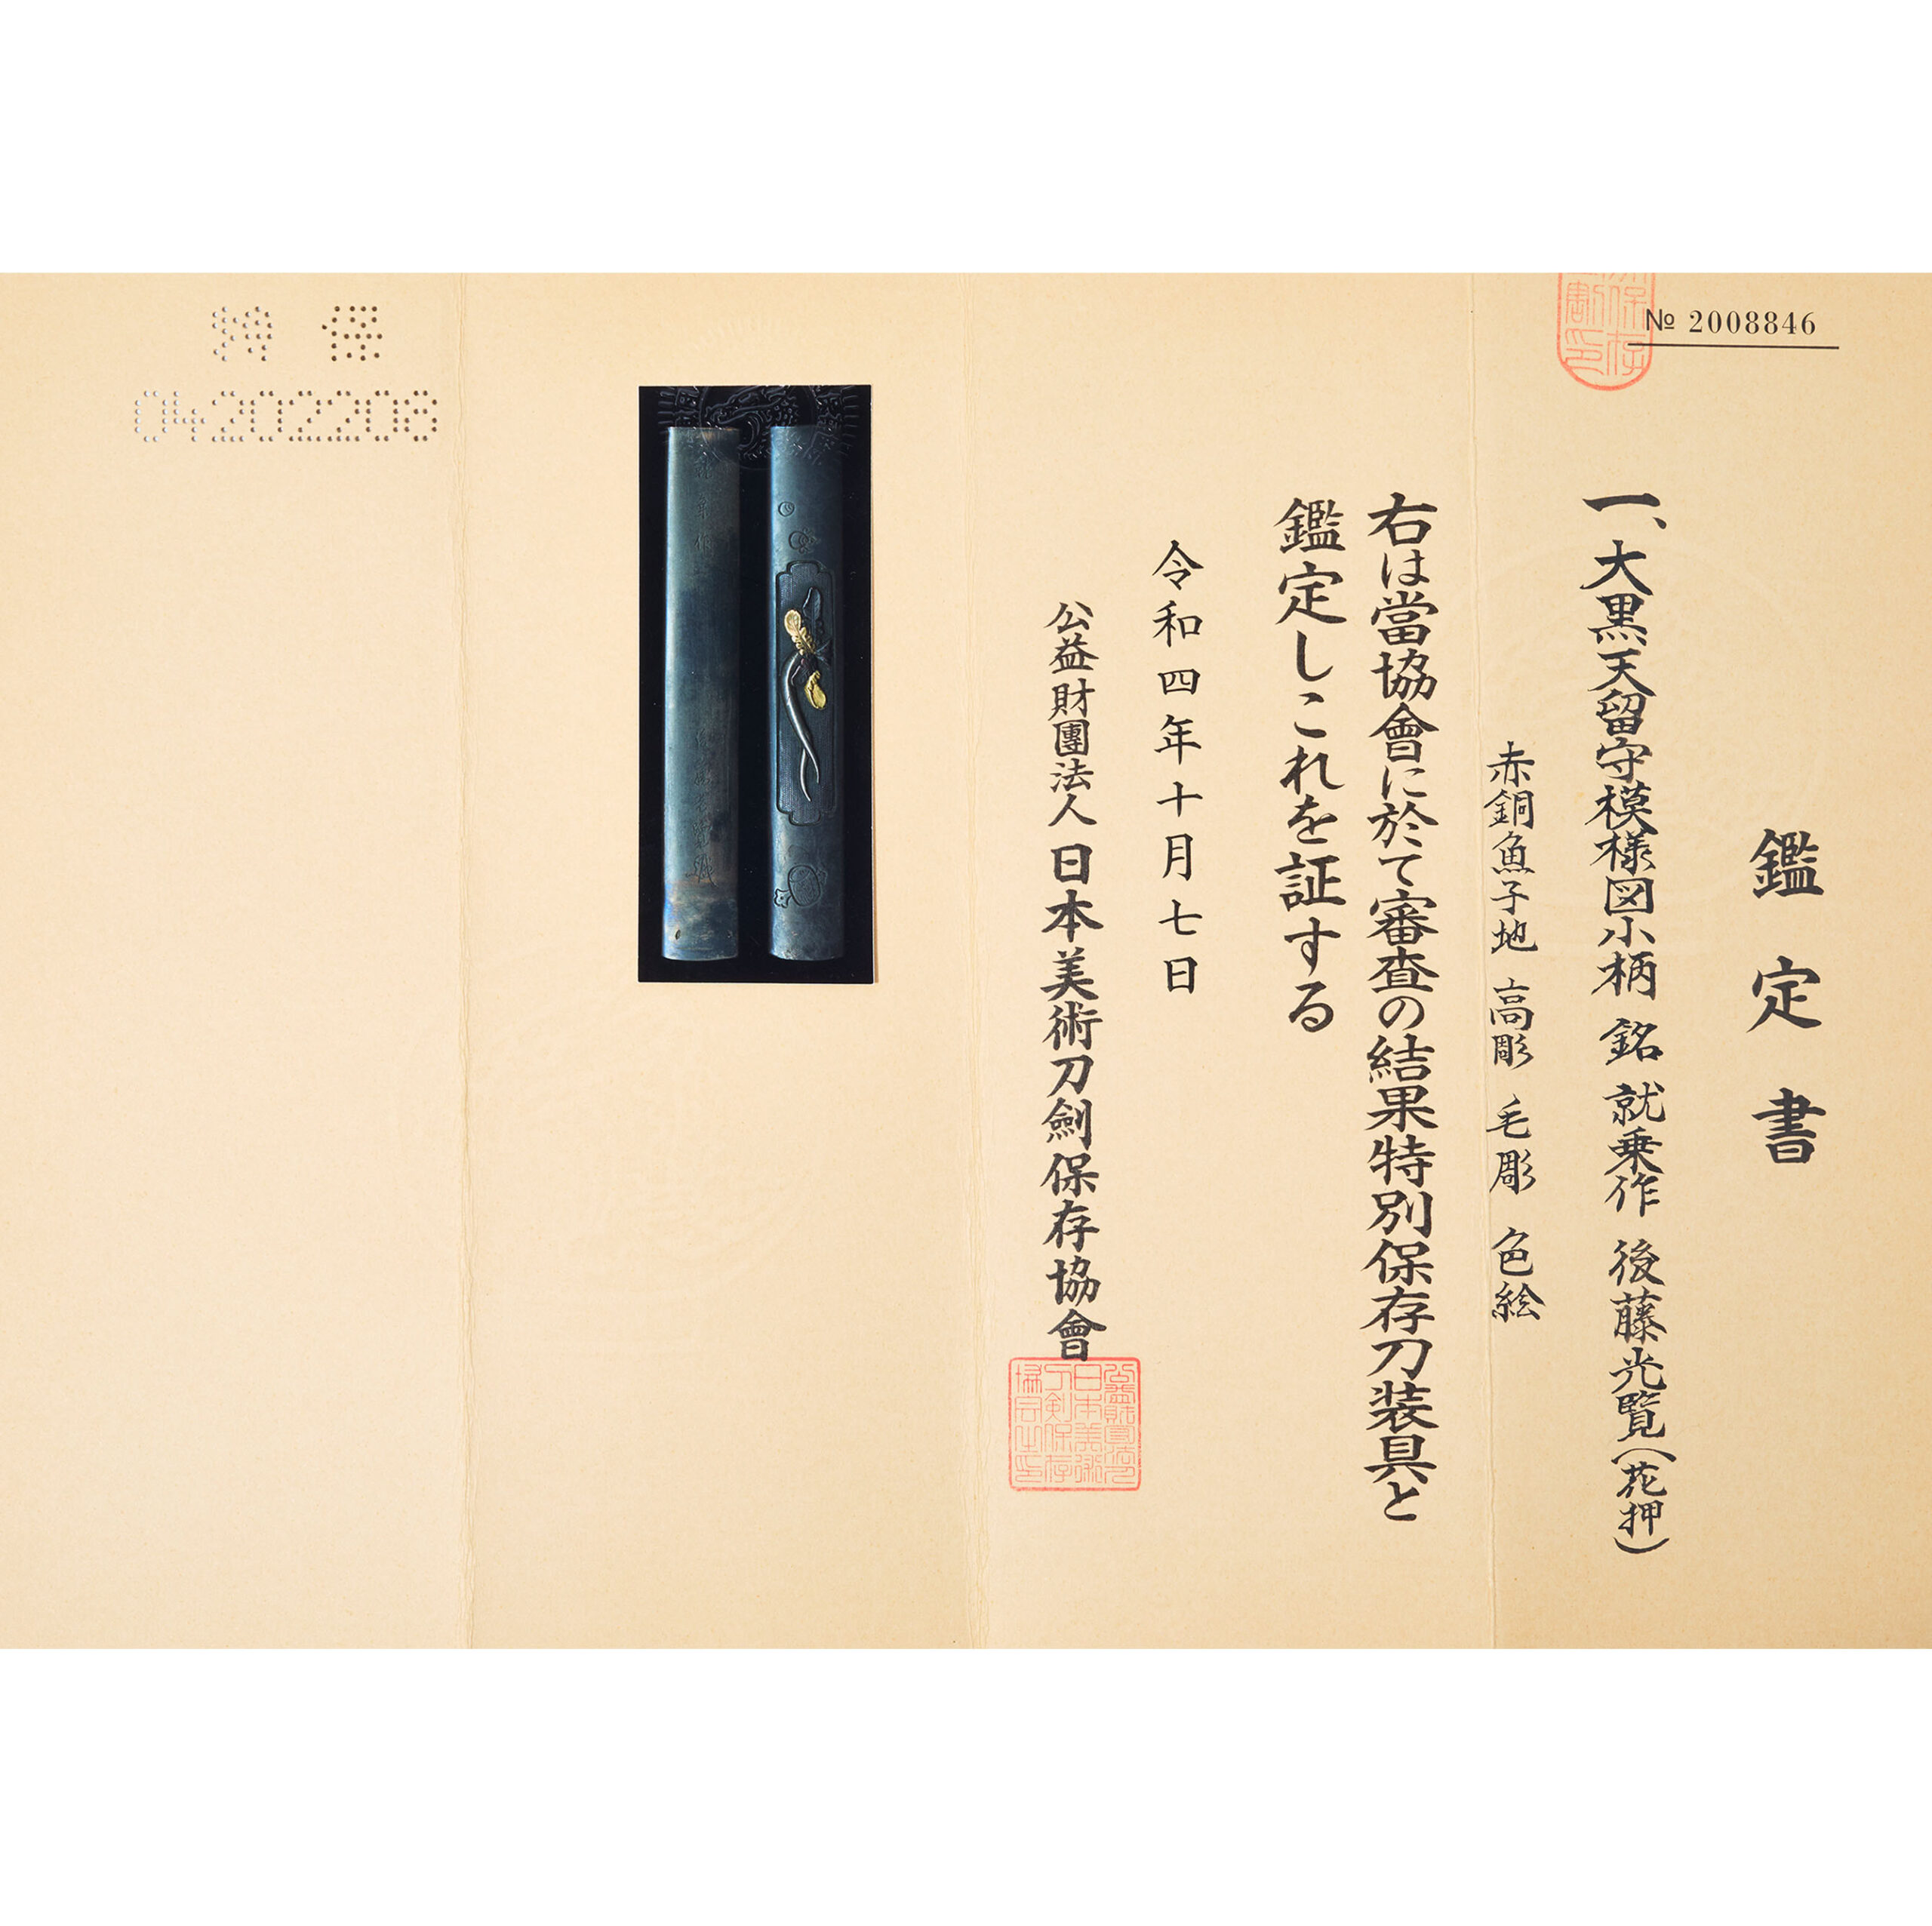 № 2008846
鑑定書
一、大黒天留守模様図小柄 銘 就乗作 後藤光覧(花押)
赤銅魚子地 高彫 毛彫 色絵
右は當協會に於て審査の結果特別保存刀装具と
鑑定しこれを証する
令和四年十月七日
公益財團法人 日本美術刀劍保存協會
保存
割印
公益財団法人
日本美術
刀剣保存
協会之印
特保
04202208